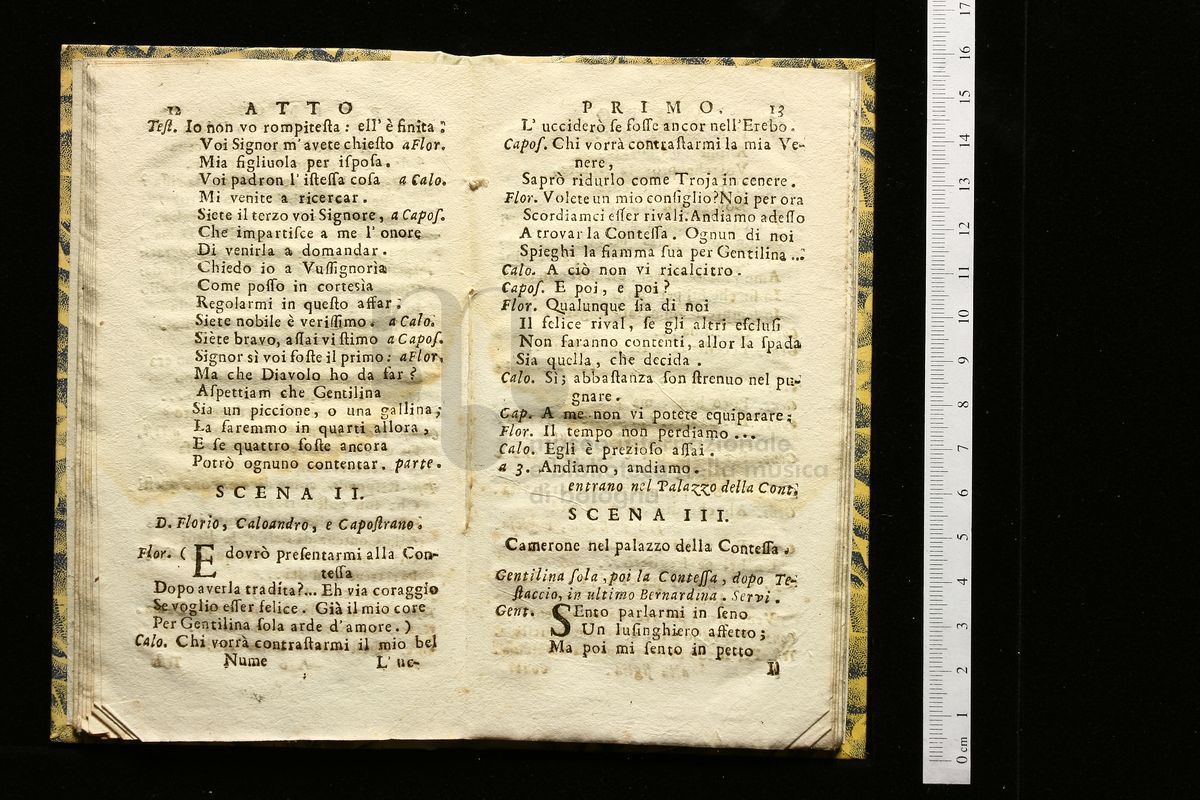 12 ATTO
Teſt. Io non vo rompiteſta : ell' è finita ;
Voi Signor m' avete chieſto a Flor.
Mia figliuola per iſpoſa.
Voi padron l' iſteſſa coſa a Calo.
Mi venite a ricercar.
Siete il terzo voi Signore, a Capoſ.
Che impartiſce a me l' onore
Di venirla a domandar.
Chiedo io a Vuſſignorìa
Come poſſo in cortesìa
Regolarmi in queſto affar ;
Siete nobile è veriſſimo. a Calo.
Siete bravo, aſſai vi ſtimo a Capoſ.
Signor sì voi foſte il primo : a Flor,
Ma che Diavolo ho da far ?
Aſpettiam che Gentilina
Sia un piccione, o una gallina ;
La faremmo in quarti allora ,
E ſe quattro foſte ancora
Potrò ognuno contentar. parte.
SCENA II.
D. Florio, Caloandro, e Capoſtrano.
Flor. ( E dovrò preſentarmi alla Con-
teſſa
Dopo averla tradita?... Eh via coraggio
Se voglio eſſer felice. Già il mio core
Per Gentilina ſola arde d'amore.)
Calo. Chi vorrà contraſtarmi il mio bel
Nume L' uc-
PRIMO. 13
L' ucciderò ſe foſſe ancor nell'Erebo.
Capoſ. Chi vorrà contraſtarmi la mia Ve-
nere,
Saprò ridurlo come Troja in cenere.
Flor. Volete un mio conſiglio? Noi per ora
Scordiamci eſſer rivali. Andiamo adeſſo
A trovar la Conteſſa. Ognun di noi
Spieghi la fiamma ſua per Gentilina ...
Calo. A ciò non vi ricalcitro.
Capoſ. E poi, e poi?
Flor. Qualunque ſia di noi
Il felice rival, ſe gli altri eſcluſi
Non faranno contenti, allor la ſpada
Sia quella, che decida.
Calo. Sì; abbaſtanza ſon ſtrenuo nel pu-
gnare.
Cap. A me non vi potete equiparare;
Flor. Il tempo non perdiamo ...
Calo. Egli è prezioſo aſſai.
a 3. Andiamo, andiamo.
entrano nel Palazzo della Cont.
SCENA III.
Camerone nel palazzo della Conteſſa.
Gentilina ſola, poi la Conteſſa, dopo Te-
ſtaccio, in ultimo Bernardina. Servi.
Gent. SEnto parlarmi in ſeno
Un luſinghiero affetto;
Ma poi mi ſento in petto
I